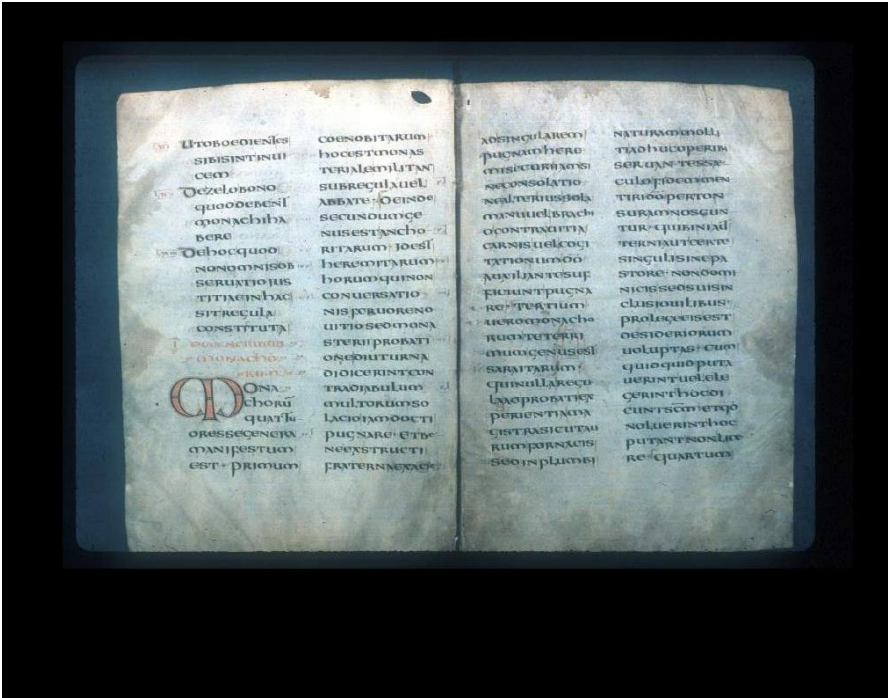 UTOBOEDIENTES
SIBISINTINUI
CEM
DEZELOBONO
QUODDEBENT
MONACHIHA
BERE
DEHOCQUOD
NONOMNISOB
SERUATIOIUS
TITIAEINHAC
SITREGULA
CONSTITUTA
I DEGENERIBUS
MONACHO
RUM
MONA
CHORŪ
QUATTU
ORESSEGENERA
MANIFESTUM
EST · PRIMUM
COENOBITARUM
HOCESTMONAS
TERIALEMILITAN
SUBREGULAUEL
ABBATE · DEINDE
SECUNDUMGE
NUSESTANCHO
RITARUM · IDEST
HEREMITARUM
HORUMQUINON
CONUERSATIO
NISFERUORENO
UITIOSEDMONA
STERIIPROBATI
ONEDIUTURNA
DIDICERINTCON
TRADIABULUM
MULTORUMSO
LACIOIAMDOCTI
PUGNARE · ETBE
NEEXSTRUCTI
FRATERNAEXACIE
ADSINGULAREM
PUGNAMHERE
MISECURIIAMSI
NECONSOLATIO
NEALTERIUSSOLA
MANUUELBRACHI
OCONTRAUITIA
CARNISUELCOGI
TATIONUMDŌ
AUXILIANTESUF
FICIUNTPUGNA
RE · TERTIUM
UEROMONACHO
RUMTETERRI
MUMGENUSEST
SARAITARUM
QUINULLAREGU
LAADPROBATIEX
PERIENTIAMA
GISTRASICUTAU
RUMFORNACIS
SEDINPLUMBI
NATURAMMOLLI
TIADHUCOPERIBI
SERUAN · TESSAE
CULOFIDEMMEN
TIRIDŌPERTON
SURAMNOSCUN
TUR · QUIBINIAUT
TERNIAUTCERTE
SINGULISINEPA
STORE · NONDOMI
NICISSEDSUISIN
CLUSIOUILIBUS
PROLEGEEISEST
DESIDERIORUM
UOLUPTAS · CUM
QUIDQUIDPUTA
UERINTUELELE
GERINTHOCDI
CUNTSCMETQD
NOLUERINTHOC
PUTANTNONLICE
RE · QUARTUM